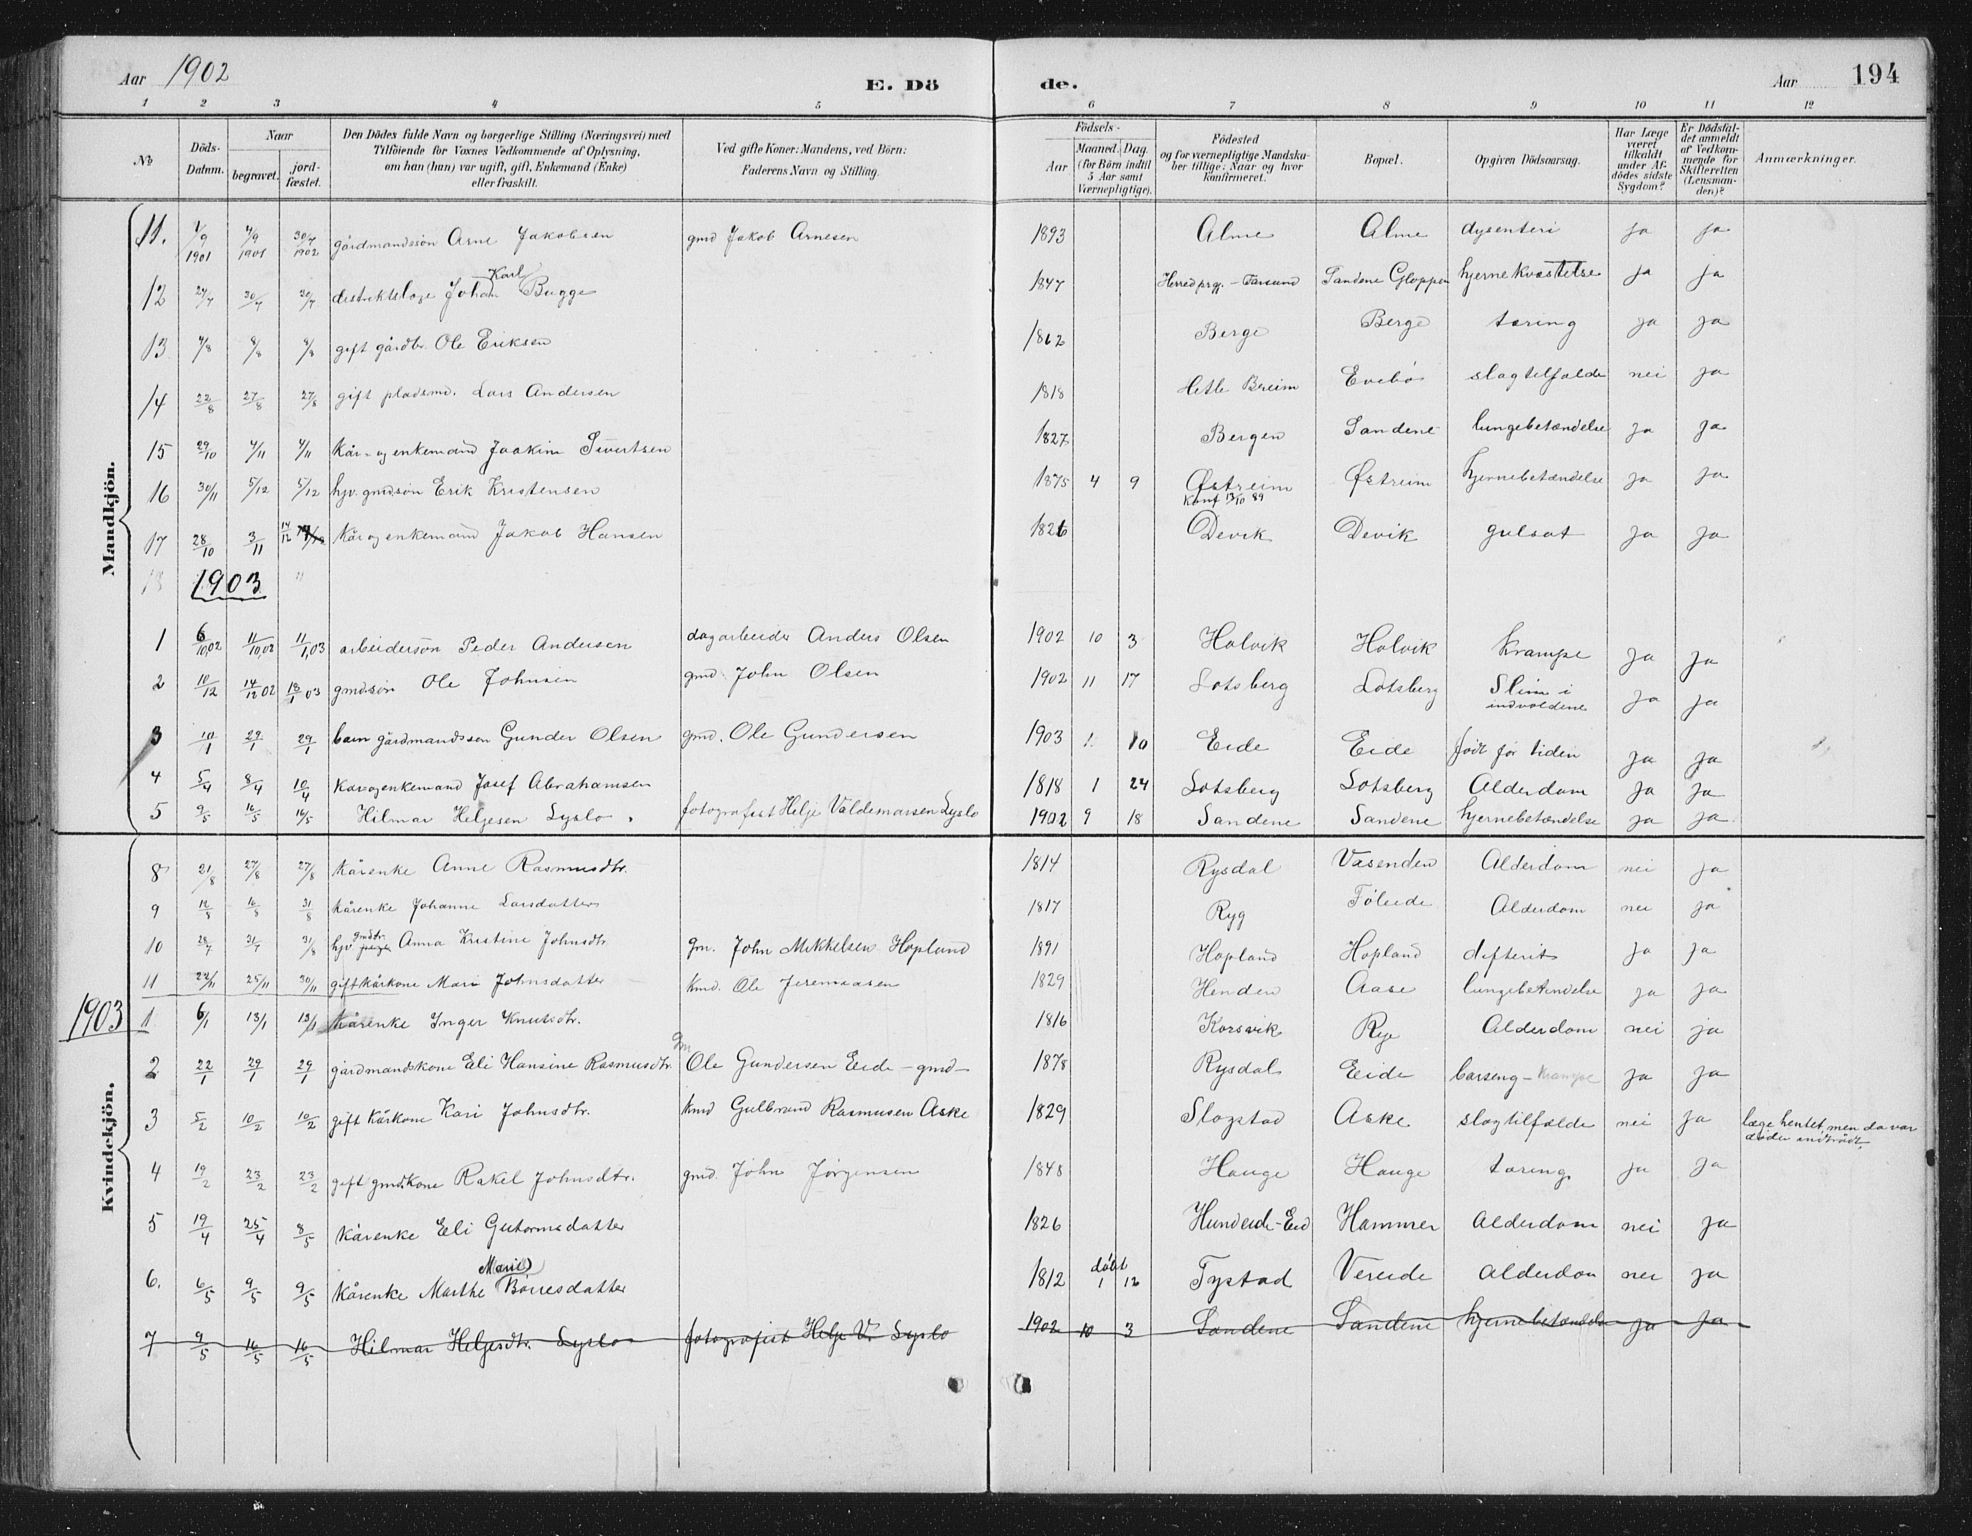 Aar 1902
E. Dö
de.
Aar 194
1 2 3 4 5 6 7 8 9 10 11 12
No
Döds-Datum.
Naar
begravet.
jord-fæstet.
Den Dödes fulde Navn og borgerlige Stilling (Næringsvei) med
Tilföiende for Voxnes Vedkommende af Oplysning,
om han (hun) var ugift, gift, Enkemand (Enke)
eller fraskilt.
Ved gifte Koner: Mandens, ved Börn:
Faderens Navn og Stilling.
Födsels-
Aar
Maaned. Dag.
(for Börn indtil
5 Aar samt
Værnepligtige).
Födested
og for værnepligtige Mandska-
ber tillige: Naar og hvor
konfirmeret.
Bopæl.
Opgiven Dödsaarsag.
Har Læge
været
tilkaldt
under Af-
dödes sidste
Sygdom?
Er Dödsfal-
det anmeldt
af Vedkom-
mende for
Skifteretten
(Lensman-
den)?
Anmærkninger.
Mandkjön.
11. 1/9 1901 4/9 1901 30/7 1902 gårdmandssön Arne Jakobsen gmd Jakob Arnesen 1893 Alme Alme dysenteri ja ja
12 24/7 30/7 30/7 distriktslæge Johan Karl Bugge 1847 Herred prgj. - Farsund Sandene Gloppen hjernekvæstelse ja ja
13 4/8 8/8 8/8 gift gårdbr. Ole Eriksen 1862 Berge Berge tæring ja ja
14 22/8 27/8 27/8 gift pladsmd. Lars Andersen 1818 Hetle Breim Evebö slagtilfælde nei ja
15 29/10 4/11 4/11 Kår- og enkemand Joakim Sivertsen 1827 Bergen Sandene lungebetændelse ja ja
16 30/11 5/12 5/12 hjv. gmdsön Erik Kristensen 1875 4 9 Østreim Østreim hjernebetændelse ja ja
Konf 13/10 89
17 28/10 3/11 14/12 Kår og enkemand Jakob Hansen 1826 Devik Devik gulsot ja ja
18 1903 "
1 6/10,02 11/10,02 11/1,03 arbeidersön Peder Andersen dagarbeider Anders Olsen 1902 10 3 Holvik Holvik Krampe ja ja
2 10/12 14/12 02 18/1 03 gmdsön Ole Johnsen gmd John Olsen 1902 11 17 Lotsberg Lotsberg Slim i indvoldene ja ja
3 10/1 29/1 29/1 barn gårdmandssön Gunder Olsen gmd. Ole Gundersen 1903 1. 10 Eide Eide født før tiden ja ja
4 5/4 8/4 10/4 Kår og enkemand Josef Abrahamsen 1818 1 24 Lotsberg Lotsberg Alderdom ja ja
5 9/5 16/5 16/5 Hilmar Helgesen Lyslo. fotografist Helje Valdemarsen Lyslo 1902 9 18 Sandene Sandene hjernebetændelse ja ja
Kvindekjön.
8 21/8 27/8 27/8 Kårenke Anne Rasmusdtr. 1814 Rysdal Vasenden Alderdom nei ja
9 12/8 16/8 31/8 Kårenke Johanne Larsdatter 1817 Ryg Föleide Alderdom nei ja
10 28/7 31/7 31/8 hjv gmdtr. Anna Kristine Johnsdtr. gm. John Mikkelsen Hopland 1891 Hopland Hopland difterit ja ja
11 22/11 25/11 30/11 gift kårkone Mari Johnsdatter kmd. Ole Jeremiasen 1829 Henden Aase lungebetændelse ja ja
1903 1 6/1 13/1 13/1 Kårenke Inger Knutsdtr. 1816 Korsvik Ryg Alderdom nei ja
2 22/1 29/1 29/1 gårdmandskone Eli Hansine Rasmusdtr. gm Ole Gundersen Eide - gmd - 1878 Rysdal Eide barseng - krampe ja ja
3 5/2 10/2 10/2 gift kårkone Kari Johnsdtr. kmd Gulbrand Rasmusen Aske 1829 Slogstad Aske slagtilfælde nei ja læge hentet, men da var döden indtrådt
4 19/2 23/2 23/2 gift gmdkone Rakel Johnsdtr. gmd. John Jörgensen 1848 Hauge Hauge tæring ja ja
5 19/4 25/4 8/5 Kårenke Eli Gutormsdatter 1826 Hundeide - Eid Hammer Alderdom nei ja
6. 6/5 9/5 9/5 Kårenke Marthe Marie Börresdatter 1812 döbt 1 12 Tystad Vereide Alderdom nei ja
7 9/5 16/5 16/5 Hilmar Helgesdtr. Lyslo fotografist Helje V. Lyslo 1902 10 3 Sandene Sandene hjernebetændelse ja ja